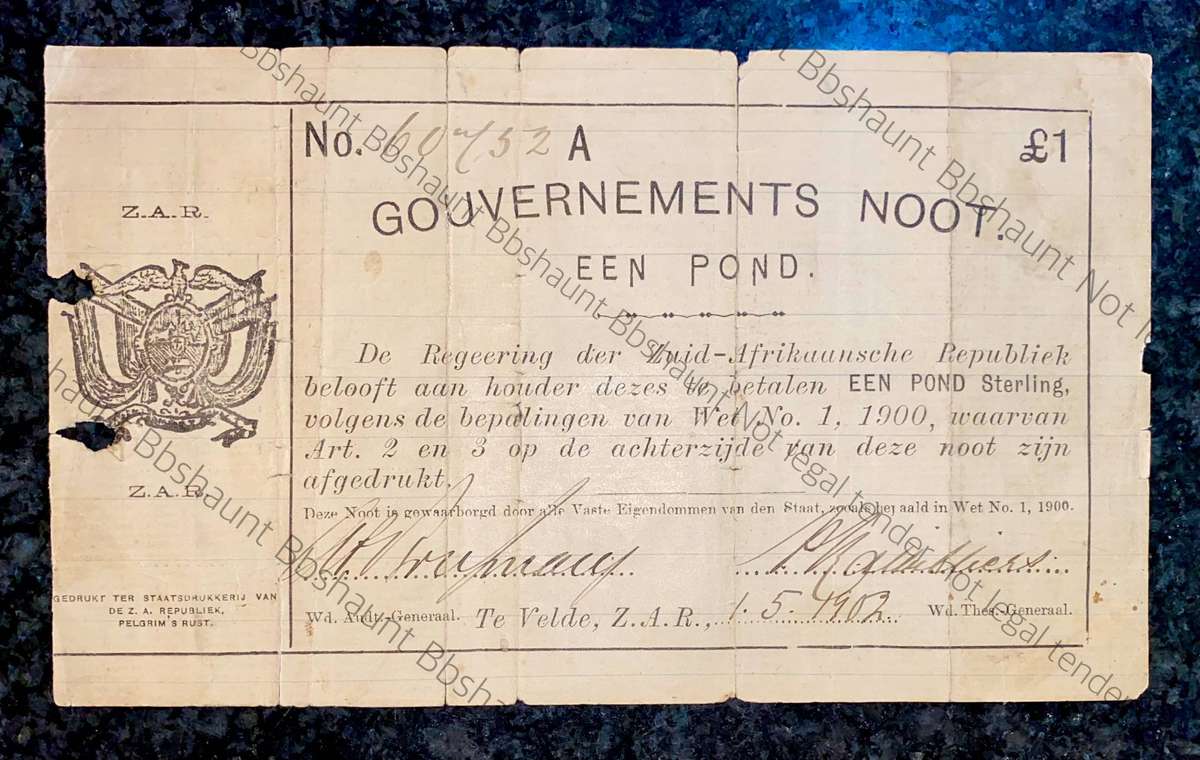 No. A £1
Z.A.R.
GOUVERNEMENTS NOOT.
EEN POND.
De Regeering der Zuid-Afrikaansche Republiek
belooft aan houder dezes te betalen EEN POND Sterling,
volgens de bepalingen van Wet No. 1, 1900, waarvan
Art. 2 en 3 op de achterzijde van deze noot zijn
afgedrukt.
Z.A.R.
Deze Noot is gewaarborgd door alle Vaste Eigendommen van den Staat, zooals bepaald in Wet No. 1, 1900.
GEDRUKT TER STAATSDRUKKERIJ VAN
DE Z. A. REPUBLIEK,
PELGRIM'S RUST.
Wd. Audt.-Generaal. Te Velde, Z.A.R., 1.5.1902 Wd. Thes.-Generaal.
Bbshaunt Bbshaunt Bbshaunt Bbshaunt Bbshaunt Not legal tender Not legal tender
Bbshaunt Bbshaunt Bbshaunt Not
Bbshaunt Bbshaunt Bbshaunt